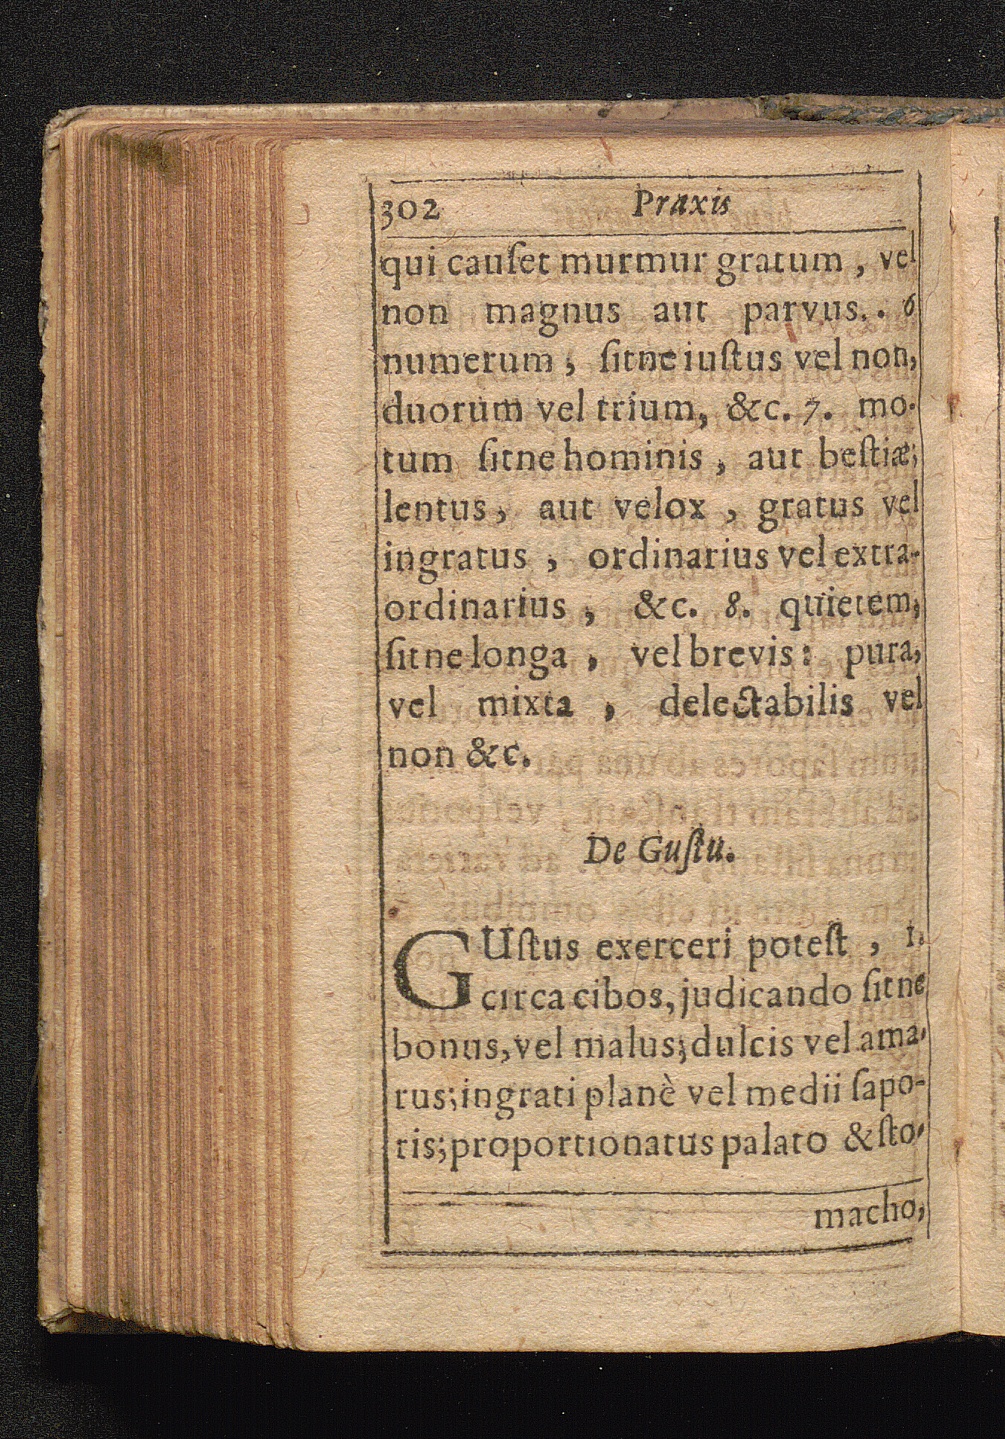 302 Praxis
qui cauſet murmur gratum , vel
non magnus aut parvus. . 6
numerum ; ſitne iuſtus vel non,
duorum vel trium, &c. 7. mo-
tum ſitne hominis , aut beſtiæ;
lentus, aut velox , gratus vel
ingratus , ordinarius vel extra-
ordinarius , &c. 8. quietem,
ſitne longa , vel brevis: pura,
vel mixta , delectabilis vel
non &c.
De Guſtu.
GUſtus exerceri poteſt , 1.
circa cibos, judicando ſitne
bonus, vel malus; dulcis vel ama-
rus; ingrati planè vel medii ſapo-
ris; proportionatus palato & ſto-
macho,